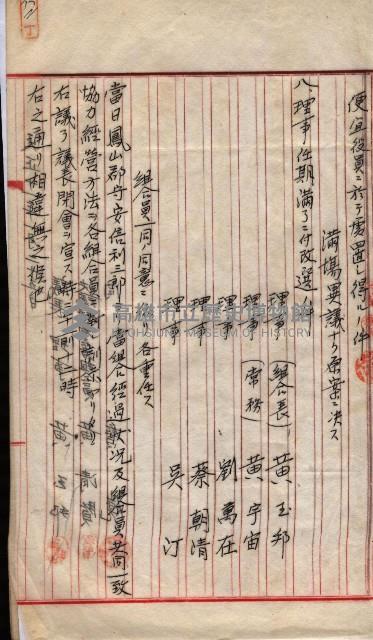 便宜役員ニ於テ處置シ得ルノ件
滿場異議ナク原案ニ決ス
八、理事任期滿了ニ付改選ノ件
理事(組合長) 黃玉邦
理事(常務) 黃宇宙
理事 劉萬在
理事 蔡朝清
理事 吳汀
組合員一同ノ同意ニヨリ各重任ス
當日鳳山郡守安倍利三郎 當組合經過狀況及組合員共同一致
協力經營方法ヲ各組合員
右議了議長閉會ヲ宣ス時 十二時
右之通リ相違無之候也
高雄市立歷史博物館
KAOHSIUNG MUSEUM OF HISTORY